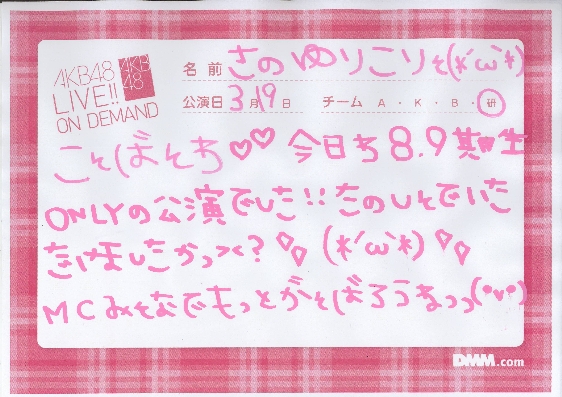 AKB48
LIVE!!
ON DEMAND
AKB
48
名前 さのゆりこりそ(*´ω`*)
公演日 3月19日 チーム A・K・B・研
こそばそわ♡♡ 今日わ8.9期生
ONLYの公演でした!! たのしそでいた
だけましたかっ<? ♡♡ (*´ω`*) ♡♡
MCみそなでもっとがそばろうねっっ(•v•)
DMM.com